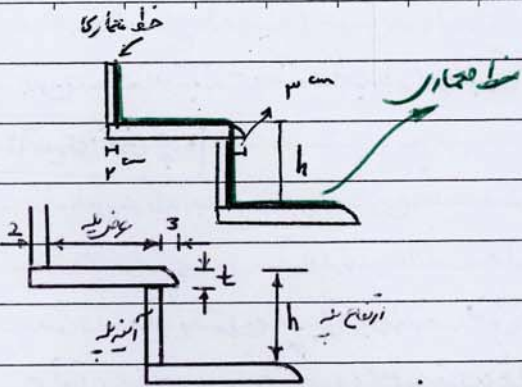 خط معماری
۳ cm
خط معماری
۲ cm
h
2
عرض پله
3
t
آئینه پله
h
ارتفاع پله